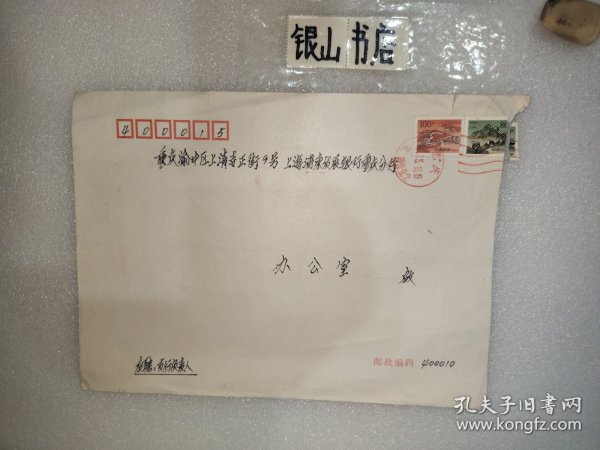 银山书店
400015
100分
重庆渝中区上清寺正街9号 上海浦东发展银行重庆分行
办公室 啟
邮政编码 400010
孔夫子旧书网
www.kongfz.com